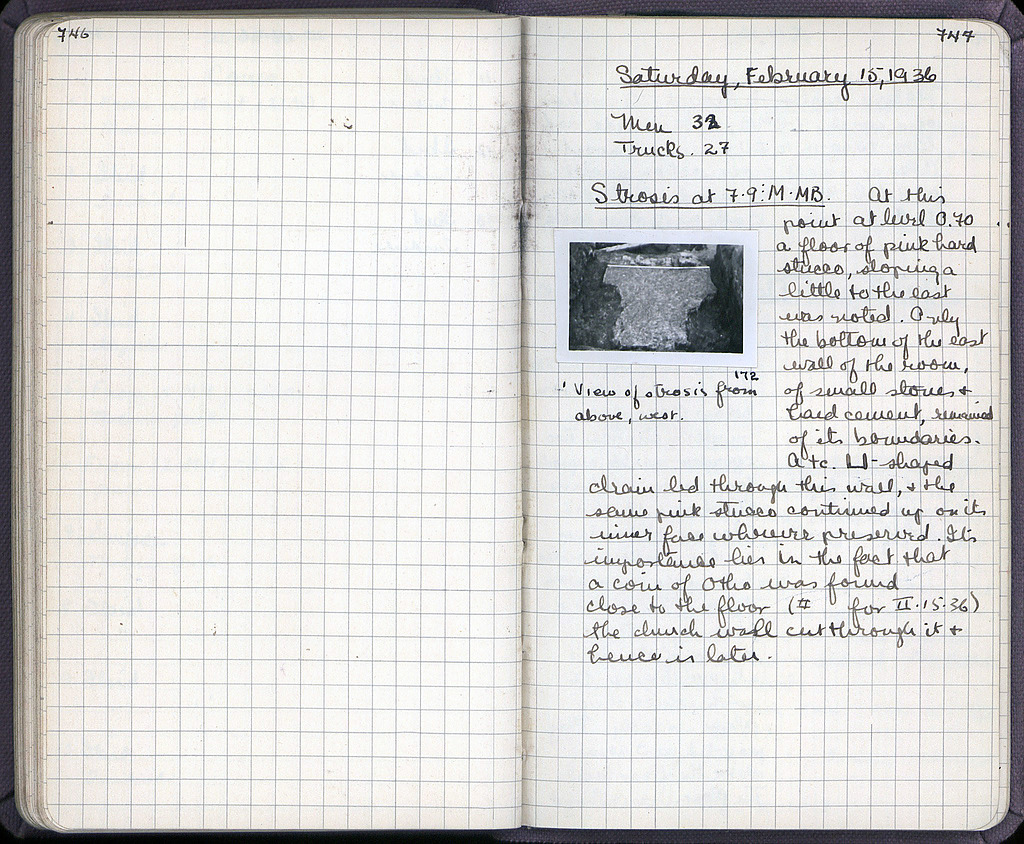 746
747
Saturday, February 15, 1936
Men 32
Trucks. 27
Strosis at 7-9:M-MB. At this
point at level 0.70
a floor of pink hard
stucco, sloping a
little to the east
was noted. Only
the bottom of the east
wall of the room,
of small stones +
hard cement, remained
of its boundaries.
A tc. ⊔-shaped
drain led through this wall, + the
same pink stucco continued up on its
inner face wherever preserved. Its
importance lies in the fact that
a coin of Otho was found
close to the floor (# for II-15-36)
the church wall cut through it +
hence is later.
172
View of strosis from
above, west.